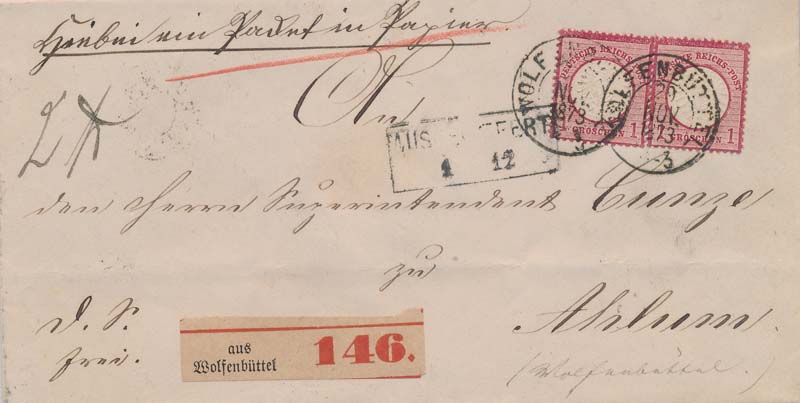 Hiebei ein Packet in Papier.
DEUTSCHE REICHS-POST
1 GROSCHEN 1
REICHS-POST
GROSCHEN 1
WOLFENBÜTTEL
20 NOV 1873
3
An
AUSGELIEFERT
1 12
den Herrn Superintendent Cunze
zu
Ahlum.
(Wolfenbüttel.)
d. S.
frei.
aus
Wolfenbüttel
146.